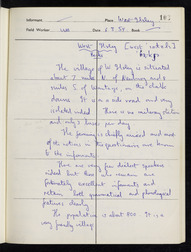 Informant Place West Ilsley
Field Worker Date 6.9.54 Book
West Ilsley
Berks
The village of W. Ilsley is situated
about 7 miles N. of Newbury and
miles S. of Wantage, on the chalk
downs. It is a side road and very
isolated indeed. There is no railway station
and only 2 buses per day.
The farming is chiefly mixed and most
of the notions in this questionnaire are known
to the informants.
Here are very few dialect speakers
indeed but those who remain are
fortunately excellent informants and
retain both grammatical and phonological
features clearly.
The population is about 200. It is a
very family village.